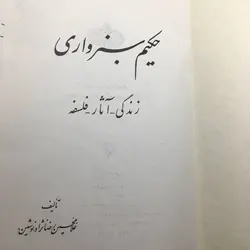 حکیم سبزواری
زندگی - آثار - فلسفه
تألیف
غلامحسین رضانژاد «نوشین»